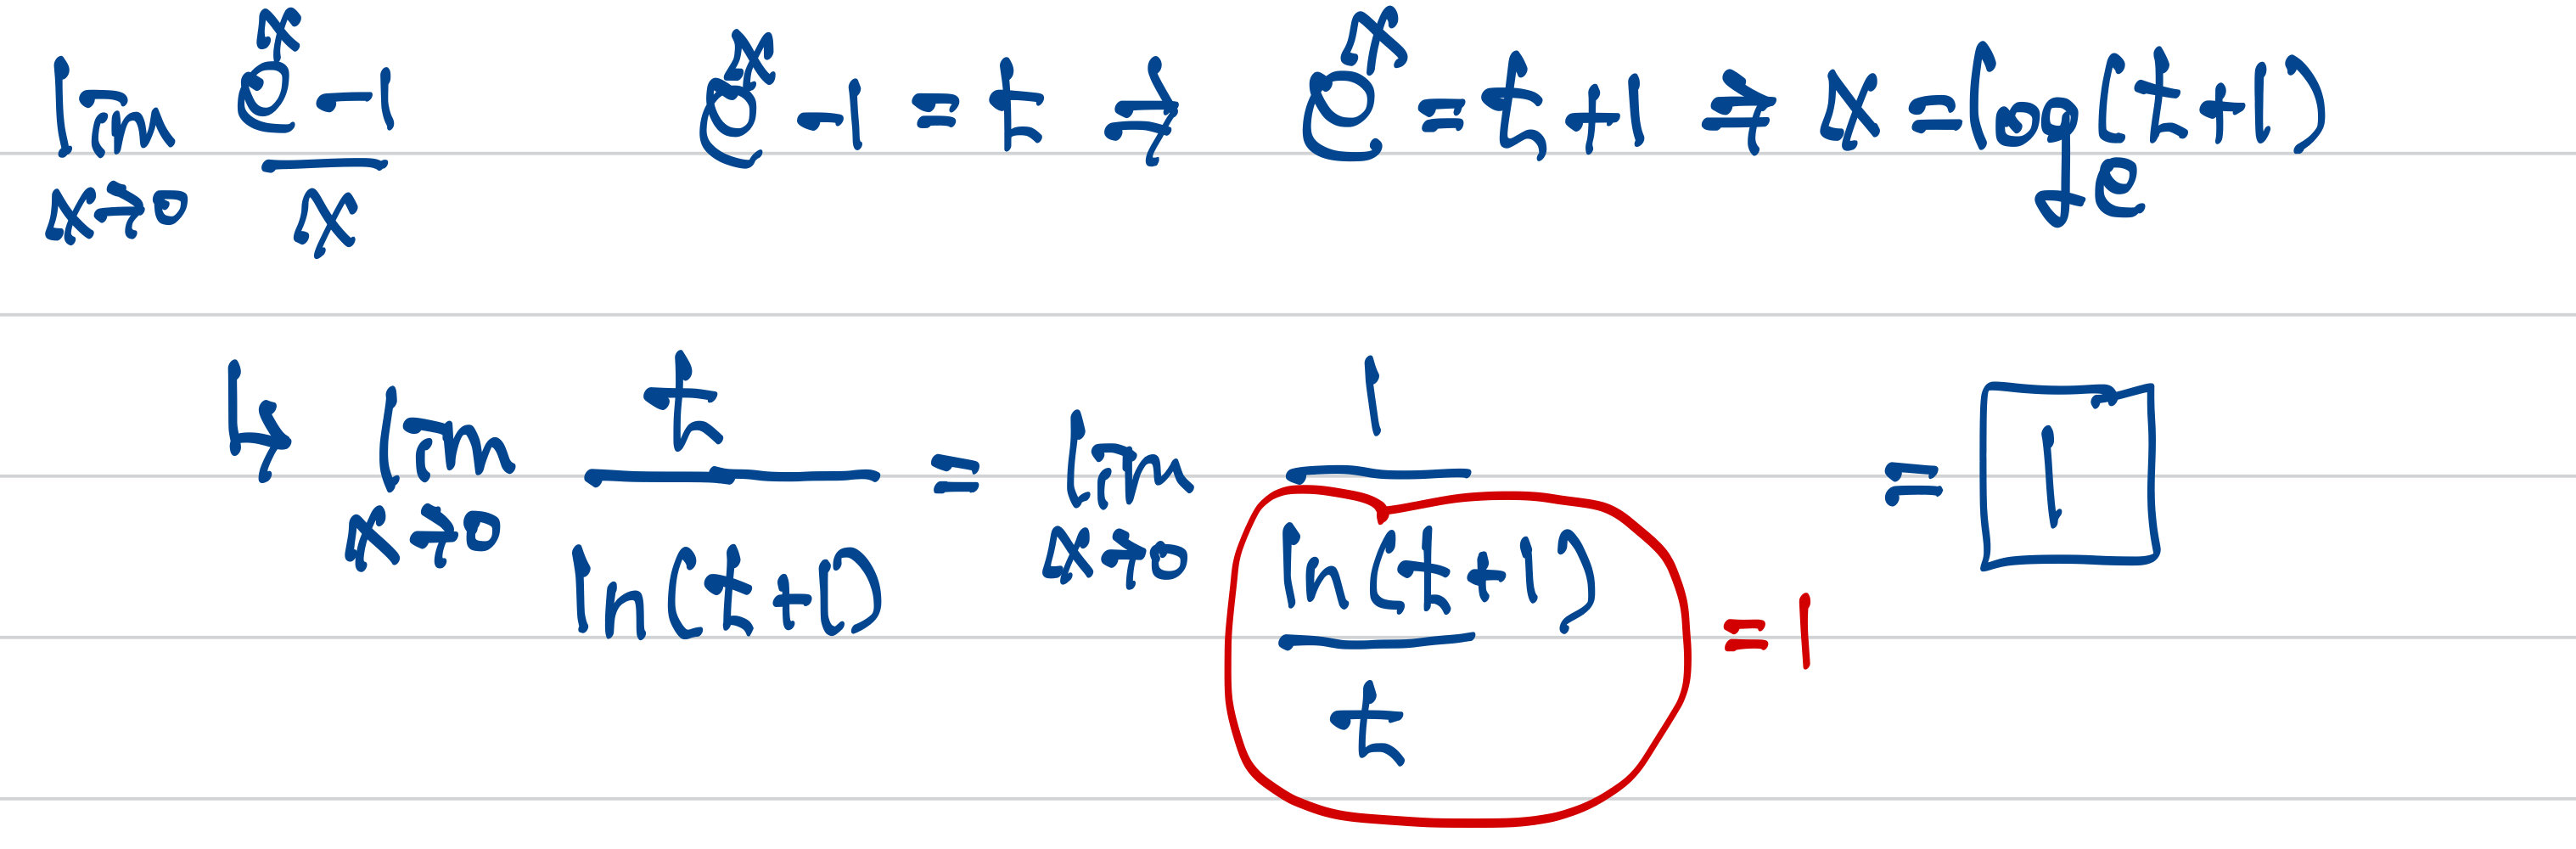 lim x→0 (e^x - 1)/x   e^x - 1 = t ⇒ e^x = t + 1 ⇒ x = log_e (t + 1)
↳ lim x→0 t/ln(t+1) = lim x→0 1/(ln(t+1)/t) = 1
= 1